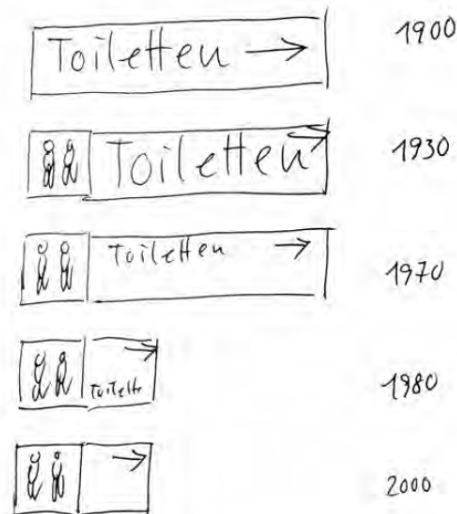 Toiletten → 1900
Toiletten → 1930
Toiletten → 1970
Toilette → 1980
→ 2000